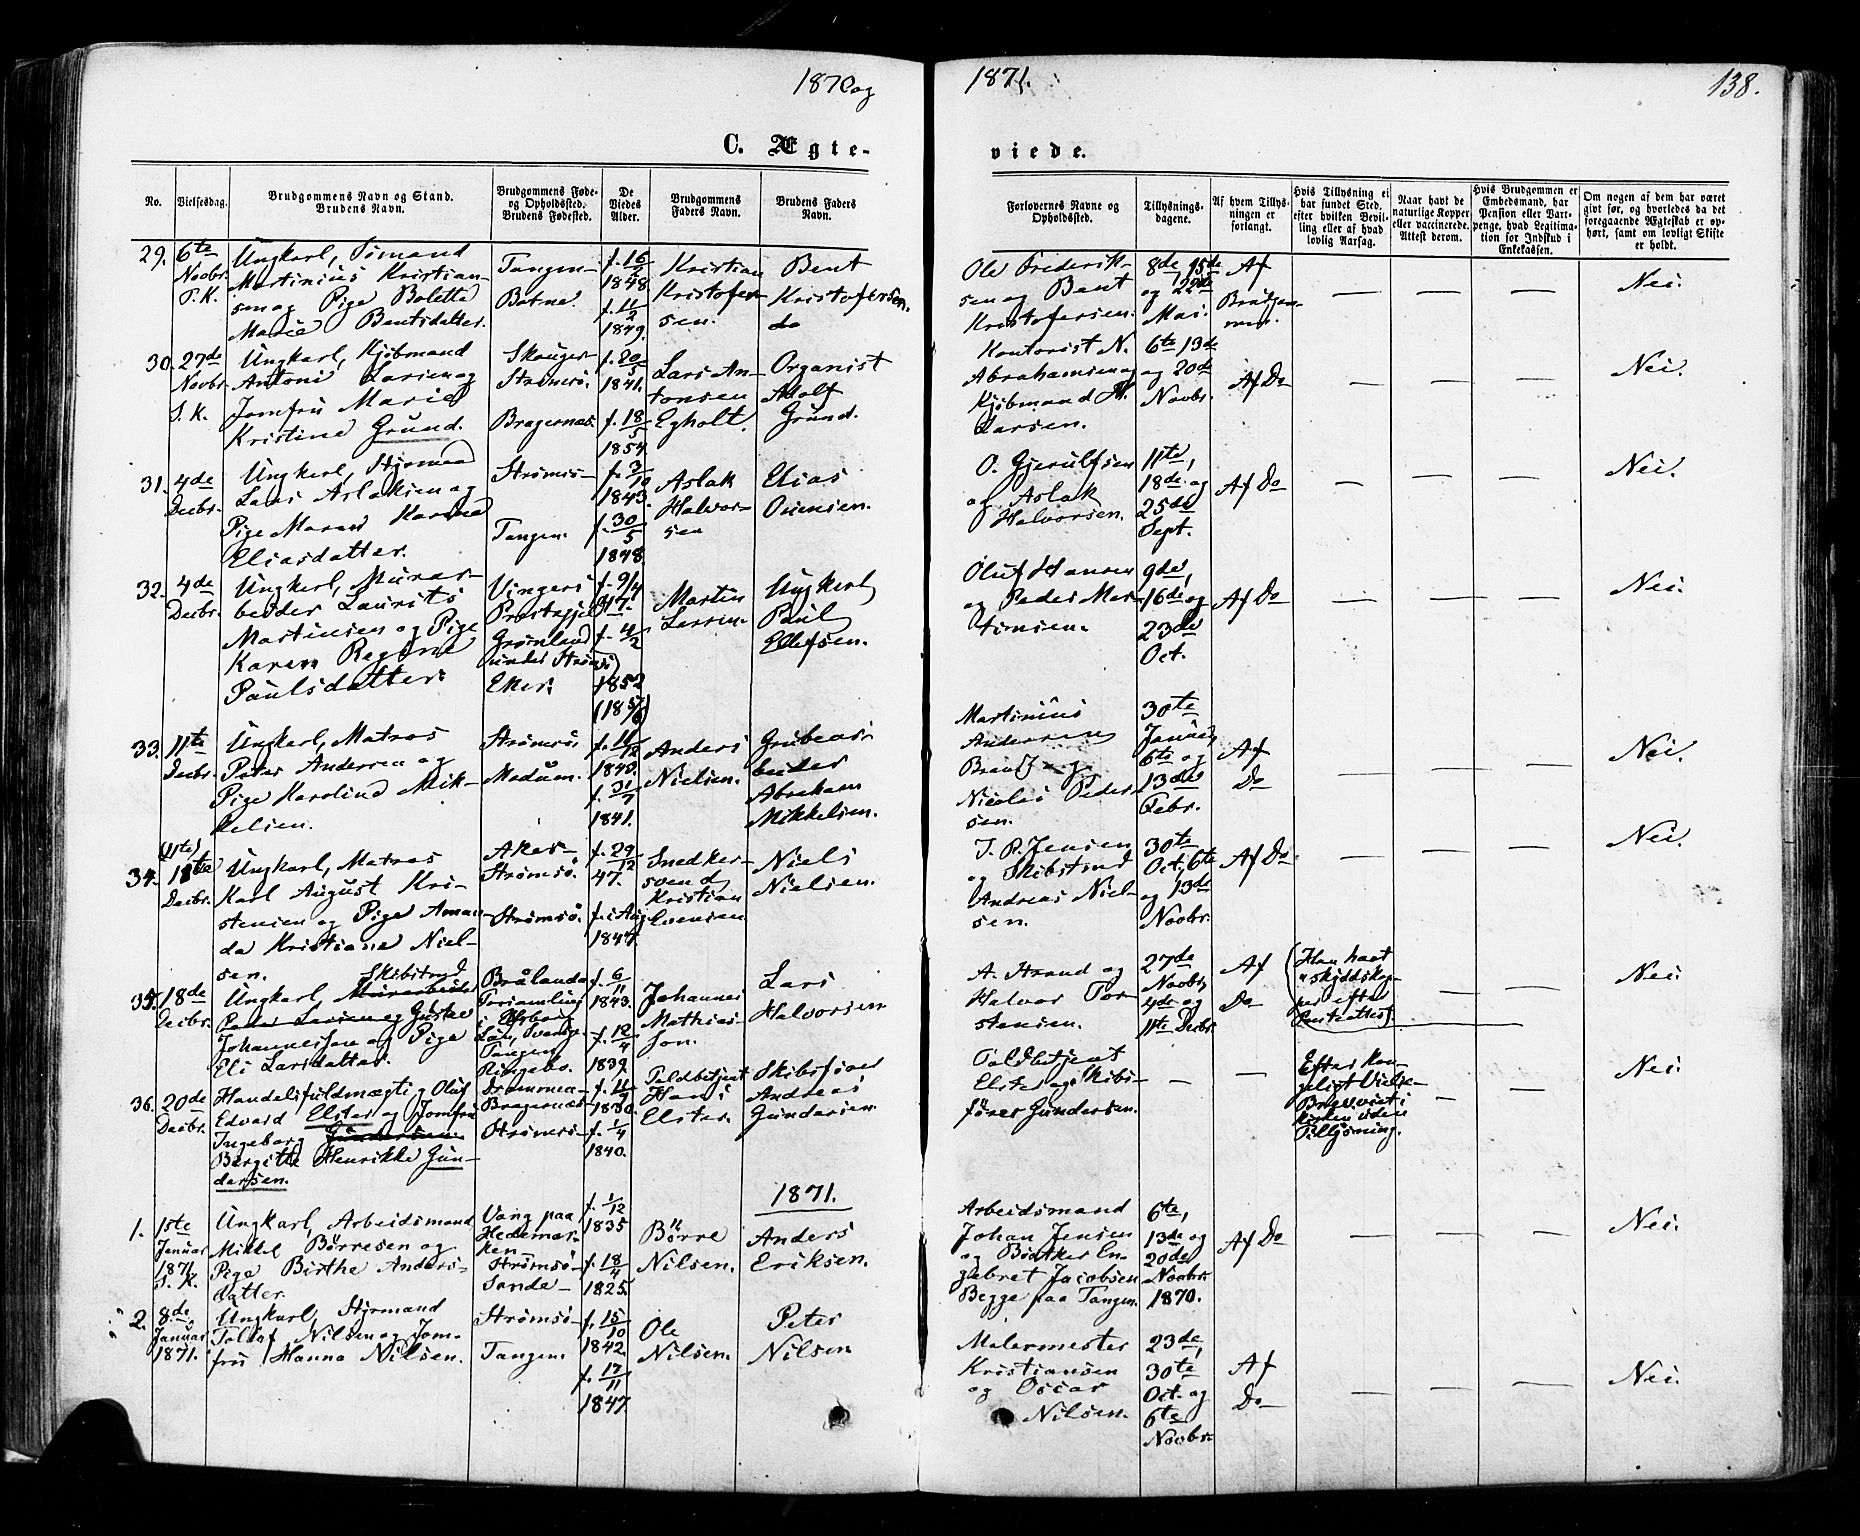 1870 og
1871.
138.
C. Ægte-
viede.
No.
Vielsesdag.
Brudgommens Navn og Stand.
Brudens Navn.
Brudgommens Føde-
og Opholdssted.
Brudens Fødested.
De
Viedes
Alder.
Brudgommens
Faders Navn.
Brudens Faders
Navn.
Forlovernes Navne og
Opholdssted.
Tillysnings-
dagene.
Af hvem Tillys-
ningen er
forlangt.
Hvis Tillysning ei
har fundet Sted,
efter hvilken Bevil-
ling eller af hvad
lovlig Aarsag.
Naar havt de
naturlige Kopper
eller vaccinerede.
Attest derom.
Hvis Brudgommen er
Embedsmand, har
Pension eller Vart-
penge, hvad Legitima-
tion for Indskud i
Enkekassen.
Om nogen af dem har været
gift før, og hvorledes da det
foregaaende Ægteskab er op-
hørt, samt om lovligt Skifte
er holdt.
29.
6te
Novbr.
T. K.
Ungkarl, Sømand
Martinius Kristian-
sen og Pige Bolette
Marie Bentsdatter.
Tangen-
Botne.
f. 16/2
1848
f. 11/2
1849.
Kristian
Kristofer-
sen.
Bent
Kristofersen.
do
Ole Frederik-
sen og Bent
Kristofersen.
8de 15de
og 22de
Mai.
Af
Brudgom-
men.
— — —
Nei.
30.
27de
Novbr.
S. K.
Ungkarl, Kjøbmand
Antoni Larsen og
Jomfru Marie
Kristine Grund.
Skouger-
Strømsø.
Bragernæs.
f. 20/5
1841.
f. 18/5
1854
Lars An-
tonsen
Egholt.
Organist
Adolf
Grund.
Kontorist N.
Abrahamsen og
Kjøbmand H.
Larsen.
6te 13de
og 20de
Novbr.
Af Do
— — —
Nei.
31.
4de
Decbr.
Ungkarl, Styrmand
Lars Aslaksen og
Pige Maren Karine
Eliasdatter.
Strømsø-
Tangen.
f. 3/10
1843.
f. 30/5
1848.
Aslak
Halvor-
sen
Elias
Ounsen.
O. Gjerulfsen
og Aslak
Halvorsen.
11te,
18de og
25de
Sept.
Af Do
— — —
Nei.
32.
4de
Decbr.
Ungkarl, Murar-
beider Laurits
Martinsen og Pige
Karen Regine
Paulsdatter.
Vingers
Prestegjeld
Grønland
under Strømsø)
Eker.
f. 9/4
47.
f. 4/2
1852
Martin
Larsen.
Ungkarl
Paul
Ellefsen.
Oluf Hansen
og Peder Mar-
tinsen.
9de,
16de og
23de
Oct.
Af Do
— — —
Nei.
33.
11te
Decbr.
Ungkarl, Matros
Peter Andersen og
Pige Karoline Mik-
kelsen.
Strømsø.
Modum.
f. 11/12
1840.
f. 31/7
1841.
Anders
Nielsen.
Grubear-
beider
Abraham
Mikkelsen.
Martinius
Andersen
Brandt og
Nicolai Peder-
sen.
30te
Januar,
6te og
13de
Febr.
Af
Do
— — —
Nei.
(11te)
34.
11te
Decbr.
Ungkarl, Matros
Karl August Kri-
stensen og Pige Aman-
da Kristiane Niel-
sen.
Aker-
Strømsø.
Strømsø.
f. 29/12
47.
f. i Aug
1847.
Snedker-
svend
Kristian
Evensen
Niels
Nielsen.
T. P. Jensen
og Skibstmd
Andreas Niel-
sen.
30te
Oct, 6te
og 13de
Novbr.
Af Do
— — —
Nei.
35.
18de
Decbr.
Skibstmd
Ungkarl, Murarbeider
Peder Larsen og Gustav
Johannesson og Pige
Eli Larsdatter.
Brålanda
Forsamling
i Elfsborg
Län, Sverige
Tangen
Ringebo.
f. 6/11
1843.
f. 12/4
1837.
Johannes
Mathis-
son.
Lars
Halvorsen
A. Strand og
Halvor Tor-
stensen.
27de
Novbr,
4de og
11te Decbr.
Af
Do
(Han havt
"skyddskop-
por efter
Prestattest)
— —
Nei.
36.
20de
Decbr.
Handelsfuldmægtig Oluf
Edvard Elster og Jomfru
Ingeborg Gundersen
Birgitte Henrikke Gun-
dersen.
Drammen-
Bragernæs-
Strømsø-
f. 11/7
1830.
f. 1/4
1840.
Toldbetjent
Hans
Elster.
Skibsfører
Andreas
Gundersen.
Toldbetjent
Elster og Skibs-
fører Gundersen.
— —
Efter Kon-
geligt Vielse-
Brev viet i
Kirken uden
Tillysning.
— —
Nei.
1871.
1.
1ste
Januar
1871.
S. K.
Ungkarl, Arbeidsmand
Mikkel Børresen og
Pige Birthe Anders-
datter.
Vang paa
Hedemar-
ken
Strømsø-
Sande-
f. 1/12
1835
f. 18/4
1825.
Børre
Nilsen.
Anders
Eriksen.
Arbeidsmand
Johan Jensen
og Bødker En-
gebret Jacobsen
Begge paa Tangen.
6te,
13de og
20de
Novbr.
1870.
Af Do
— — —
Nei.
2.
8de
Januar
1871.
Ungkarl, Styrmand
Tollef Nilsen og Jom-
fru Hanna Nilsen.
Strømsø-
Tangen.
f. 15/10
1842.
f. 17/11
1847.
Ole
Nilsen.
Peter
Nilsen
Malermester
Kristiansen
og Oscar
Nilsen.
23de,
30te
Oct. og
6te
Novbr.
Af
Do
— — —
Nei.